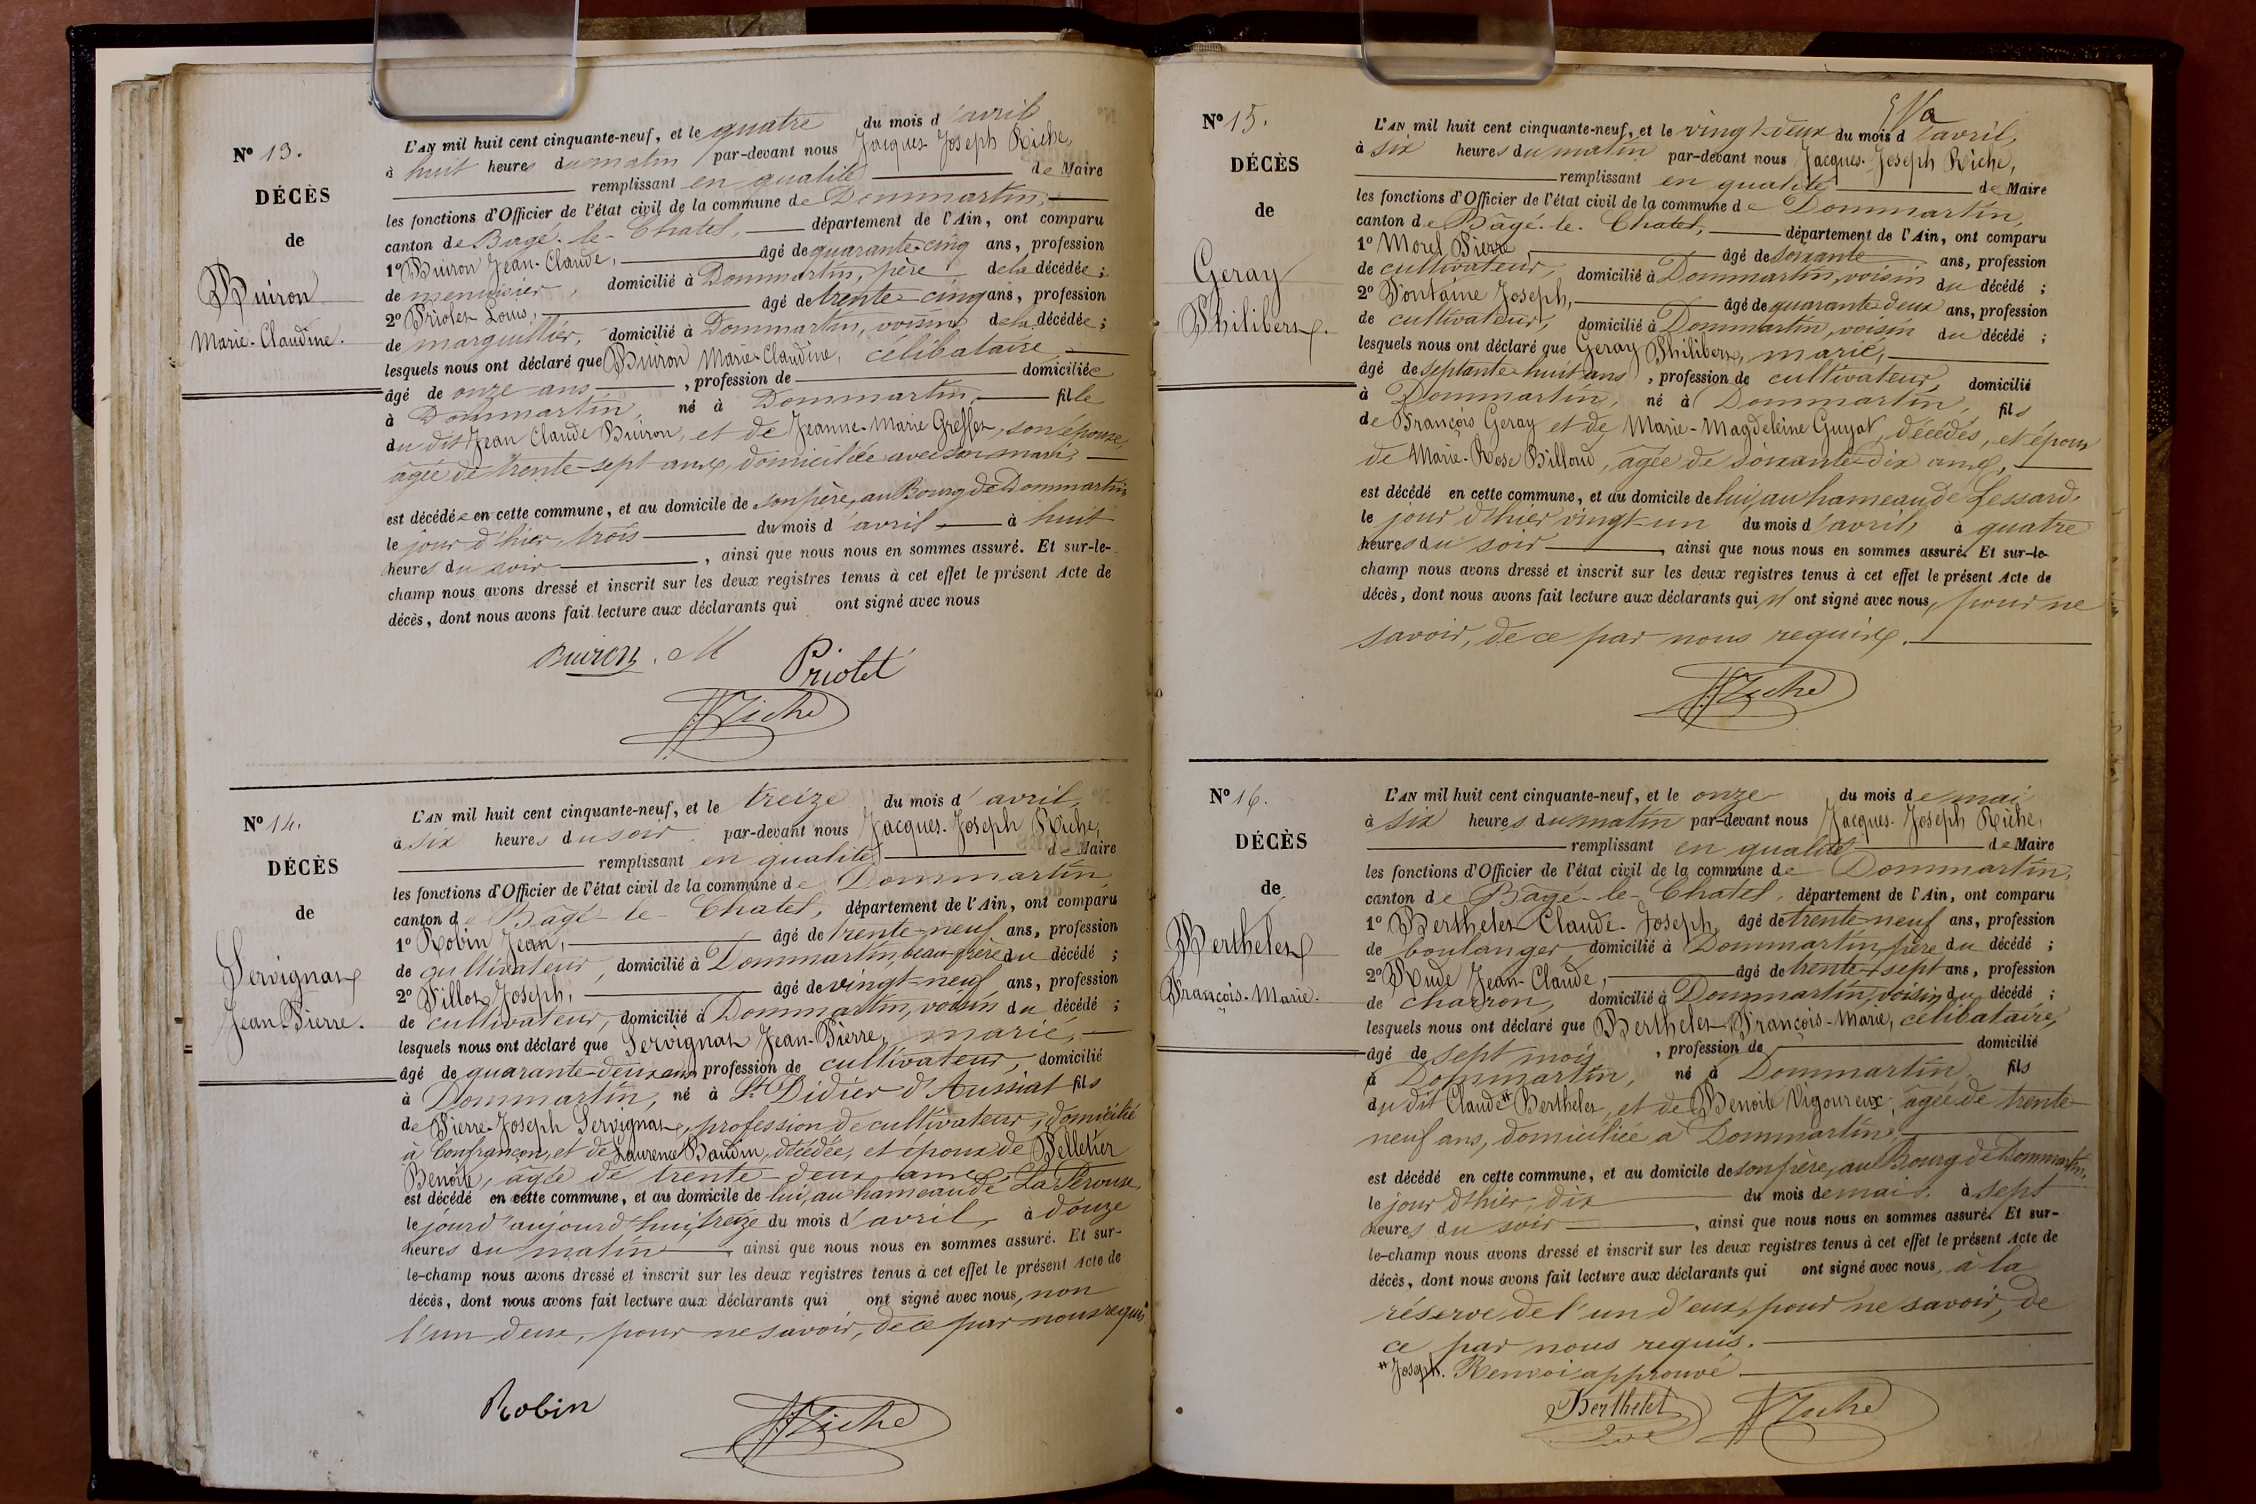 Nº 13.
DÉCÈS
de
Buiron
Marie-Claudine.
L'AN mil huit cent cinquante-neuf, et le quatre du mois d'avril
à huit heures du matin par-devant nous Jacques Joseph Riche,
remplissant en qualité de Maire
les fonctions d'Officier de l'état civil de la commune de Dommartin,
canton de Bagé-le-Chatel, département de l'Ain, ont comparu
1º Buiron Jean-Claude, âgé de quarante-cinq ans, profession
de menuisier, domicilié à Dommartin, père de la décédée ;
2º Priolet Louis, âgé de trente-cinq ans, profession
de marguillier, domicilié à Dommartin, voisin de la décédée ;
lesquels nous ont déclaré que Buiron Marie-Claudine, célibataire
âgé de onze ans, profession de domiciliée
à Dommartin, né à Dommartin, fille
du dit Jean Claude Buiron, et de Jeanne-Marie Greffet, son épouse,
âgée de trente-sept ans, domiciliée avec son mari,
est décédée en cette commune, et au domicile de son père, au Bourg de Dommartin
le jour d'hier, trois du mois d'avril à huit
heures du soir, ainsi que nous nous en sommes assuré. Et sur-le-
champ nous avons dressé et inscrit sur les deux registres tenus à cet effet le présent Acte de
décès, dont nous avons fait lecture aux déclarants qui ont signé avec nous
Buiron. M Priolet
JJ Riche
Nº 14.
DÉCÈS
de
Servignat
Jean-Pierre.
L'AN mil huit cent cinquante-neuf, et le treize du mois d'avril,
à six heures du soir par-devant nous Jacques-Joseph Riche,
remplissant en qualité de Maire
les fonctions d'Officier de l'état civil de la commune de Dommartin,
canton de Bâgé-le-Chatel, département de l'Ain, ont comparu
1º Robin Jean, âgé de trente-neuf ans, profession
de cultivateur, domicilié à Dommartin, beau-frère du décédé ;
2º Pillot Joseph, âgé de vingt-neuf ans, profession
de cultivateur, domicilié à Dommartin, voisin du décédé ;
lesquels nous ont déclaré que Servignat Jean-Pierre, marié,
âgé de quarante-deux ans profession de cultivateur, domicilié
à Dommartin, né à St Didier d'Aussiat fils
de Pierre-Joseph Servignat, profession de cultivateur, domicilié
à Confrançon, et de Laurence Baudin, décédée, et époux de Pelletier
Benoite, âgée de trente-deux ans
est décédé en cette commune, et au domicile de lui, au hameau de La Pérouse,
le jour d'aujourd'hui, treize du mois d'avril, à douze
heures du matin, ainsi que nous nous en sommes assuré. Et sur-
le-champ nous avons dressé et inscrit sur les deux registres tenus à cet effet le présent Acte de
décès, dont nous avons fait lecture aux déclarants qui ont signé avec nous, non
l'un deux, pour ne savoir, de ce par nous requis
Robin JJ Riche
Nº 15.
DÉCÈS
de
Geray
Philibert.
L'AN mil huit cent cinquante-neuf, et le vingt-deux du mois d'avril,
à six heures du matin par-devant nous Jacques-Joseph Riche,
remplissant en qualité de Maire
les fonctions d'Officier de l'état civil de la commune de Dommartin,
canton de Bâgé-le-Chatel, département de l'Ain, ont comparu
1º Morel Pierre âgé de soixante ans, profession
de cultivateur, domicilié à Dommartin, voisin du décédé ;
2º Fontaine Joseph, âgé de quarante-deux ans, profession
de cultivateur, domicilié à Dommartin, voisin du décédé ;
lesquels nous ont déclaré que Geray Philibert, marié,
âgé de septante-huit ans, profession de cultivateur, domicilié
à Dommartin, né à Dommartin, fils
de François Geray et de Marie-Magdeleine Guyat, décédés, et époux
de Marie-Rose Billoud, âgée de soixante-dix ans,
est décédé en cette commune, et au domicile de lui, au hameau de Lessard,
le jour d'hier vingt-un du mois d'avril, à quatre
heures du soir, ainsi que nous nous en sommes assuré. Et sur-le-
champ nous avons dressé et inscrit sur les deux registres tenus à cet effet le présent Acte de
décès, dont nous avons fait lecture aux déclarants qui n'ont signé avec nous, pour ne
savoir, de ce par nous requis.
JJ Riche
Nº 16.
DÉCÈS
de
Berthelet
François-Marie.
L'AN mil huit cent cinquante-neuf, et le onze du mois de mai
à six heures du matin par-devant nous Jacques-Joseph Riche,
remplissant en qualité de Maire
les fonctions d'Officier de l'état civil de la commune de Dommartin,
canton de Bâgé-le-Chatel, département de l'Ain, ont comparu
1º Berthelet Claude-Joseph, âgé de trente-neuf ans, profession
de boulanger, domicilié à Dommartin, père du décédé ;
2º Rude Jean-Claude, âgé de trente-sept ans, profession
de charron, domicilié à Dommartin, voisin du décédé ;
lesquels nous ont déclaré que Berthelet François-Marie, célibataire,
âgé de sept mois, profession de domicilié
à Dommartin, né à Dommartin fils
du dit Claude # Berthelet, et de Benoite Vigoureux, âgée de trente-
neuf ans, domiciliée à Dommartin,
est décédé en cette commune, et au domicile de son père, au Bourg de Dommartin,
le jour d'hier, dix du mois de mai. à sept
heures du soir, ainsi que nous nous en sommes assuré. Et sur-
le-champ nous avons dressé et inscrit sur les deux registres tenus à cet effet le présent Acte de
décès, dont nous avons fait lecture aux déclarants qui ont signé avec nous, à la
réserve de l'un d'eux, pour ne savoir, de
ce par nous requis.
# Joseph. Renvoi approuvé
Berthelet JJ Riche